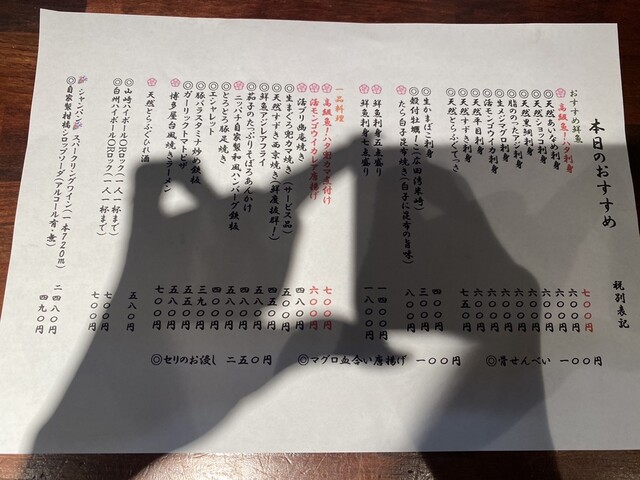 本日のおすすめ
税別表記
おすすめ鮮魚
高級魚！ハタ刺身 七〇〇円
天然あいなめ刺身 六〇〇円
天然ショッコ刺身 六〇〇円
天然黒鯛刺身
脂のったアジ刺身
生メジマグロ刺身
活ホンビノス刺身
天然本目刺身
天然すずき刺身
天然とらふぐてっさ 七五〇円
生かまぼこ刺身 四〇〇円
殻付牡蠣！(広田湾米崎) 三〇〇円
たら白子昆布焼き(白子に昆布の旨味) 八〇〇円
鮮魚刺身五点盛り 一四〇〇円
鮮魚刺身七点盛り 一八〇〇円
一品料理
高級魚！ハタ兜カマ煮付け 七〇〇円
活モンゴウイカゲソ唐揚げ 六〇〇円
活ブリ幽庵焼き 四八〇円
生まぐろ兜カマ焼き(サービス品)
天然すずき西京焼き(鮮度抜群！)
鮮魚アジレアフライ
茄子のたっぷりそぼろあんかけ
ニッパチ自家製和風ハンバーグ鉄板
とろとろ豚足焼き
エシャレット 三九〇円
豚バラスタミナ炒め鉄板 五八〇円
ガーリックトマトピザ
博多屋台風焼きラーメン 七〇〇円
天然とらふぐひれ酒 五八〇円
山崎ハイボールORロック(一人一杯まで) 七〇〇円
白州ハイボールORロック(一人一杯まで) 七〇〇円
シャンパン スパークリングワイン(一本720ml) 二四八〇円
自家製柑橘シロップソーダ(アルコール有・無) 四九〇円
◎セリのお浸し 二五〇円
◎マグロ血合い唐揚げ 一〇〇円
◎骨せんべい 一〇〇円